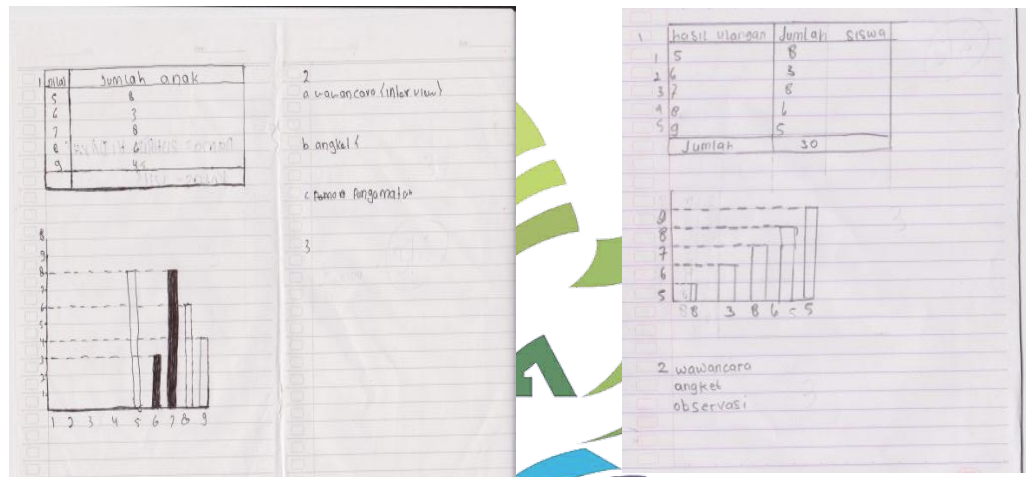 1 nilai Jumlah anak
5 8
6 3
7 8
8 6
9 45
8
9
8
7
6
5
4
3
2
1
1 2 3 4 5 6 7 8 9
2
a wawancara (inter view)
b angket (
c Pengamatan
3
1 hasil ulangan Jumlah siswa
1 5 8
2 6 3
3 7 8
4 8 6
5 9 5
Jumlah 30
9
8
7
6
5
8 3 8 6 5
2 wawancara
angket
observasi